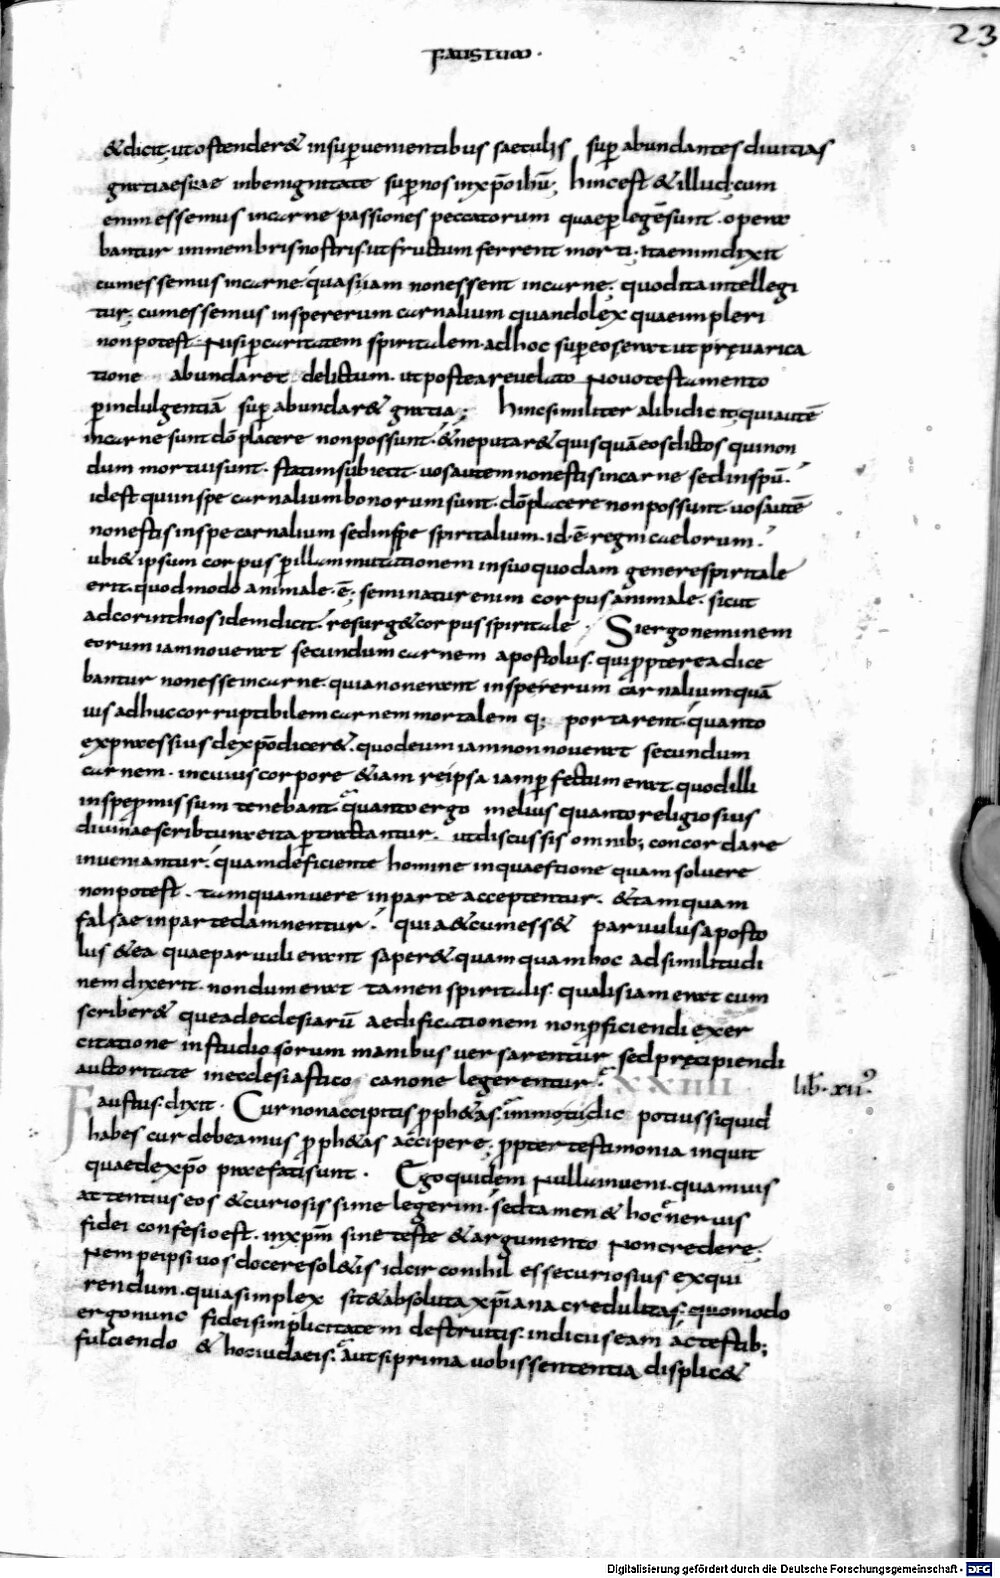 FAUSTUM·
23
& dicit· ut ostender& insup̄venientibus saeculis sup̄ abundantes divitias
gratiae suae inbenignitate sup̄ nos inxp̄o ihū; hinc est & illud; cum
enim essemus incarne passiones peccatorum quae p̄ legē sunt· opera
bantur inmembris nostris· ut fructum ferrent morti· ita enim dixit
cum essemus incarne· quasi iam non essent incarne; quod ita intellegi
tur; cum essemus inspe rerum carnalium quando lex quae impleri
non potest Nisi p̄ caritatem spiritalem· adhoc sup̄ eos erat ut pręvarica
tione abundaret delictum· ut postea revelato Novo testamento
p̄ indulgentiā sup̄ abundar& gratia; hinc similiter alibi dicit; qui autē
incarne sunt dō placere non possunt· & ne putar& quisquā eos dictos qui non
dum mortui sunt· statim subiecit· vos autem non estis incarne sed inspū·
id est qui inspe carnalium bonorum sunt· dō placere non possunt· vos autē
non estis inspe carnalium sed inspe spiritalium· id·ē· regni caelorum·
ubi & ipsum corpus p̄ illam mutationem in suo quodam genere spiritale
erit· quod modo animale·ē; seminatur enim corpus animale· sicut
ad corinthios idem dicit· resurg& corpus spiritale· Si ergo neminem
eorum iam noverat secundum carnem apostolus· qui p̄pterea dice
bantur non esse incarne· quia non erant inspe rerum carnalium quā
vis adhuc corruptibilem carnem mortalem q; portarent· quanto
expraessius de xp̄o dicer&· quod eum iam non noverat secundum
carnem· incuius corpore &iam re ipsa iam p̄fectum erat· quod illi
inspe p̄missum tenebant· quanto ergo melius quanto religiosius
divinae scribturae ita p̄tractantur· ut discussis omnib; concordare
inveniantur· quam deficiente homine inquaestione quam solvere
non potest· tamquam vere inparte acceptentur· & tamquam
falsae inparte damnentur· quia & cum ess& parvulus aposto
lus & ea quae parvuli erant saper&· quamquam hoc ad similitudi
nem dixerit· nondum erat tamen spiritalis· qualis iam erat cum
scriber& que ad ecclesiarū aedificationem non p̄ficiendi exer
citatione in studiosorum manibus versarentur sed pręcipiendi
auctoritate in ecclesiastico canone legerentur· XXIIII
lib· xiī
Faustus· dixit· Cur non accipitis p̄ph&as· immo tu dic potius siquid
habes cur debeamus p̄ph&as accipere; p̄pter testimonia inquit
quae de xp̄o praefati sunt· Ego quidem Nulla inveni· quamvis
attentius eos & curiosissime legerim· sed tamen & hoc nervis
fidei confesio est· in xp̄m sine teste & argumento Non credere·
Nempe ipsi vos docere sol&is idcirco nihil esse curiosius exqui
rendum· quia simplex sit & absoluta xp̄iana credulitas· quomodo
ergo nunc fidei simplicitatem destruitis· indicus eam ac testib;
fulciendo & hoc iudaeis· aut si prima vobis sententia displic&
Digitalisierung gefördert durch die Deutsche Forschungsgemeinschaft - DFG